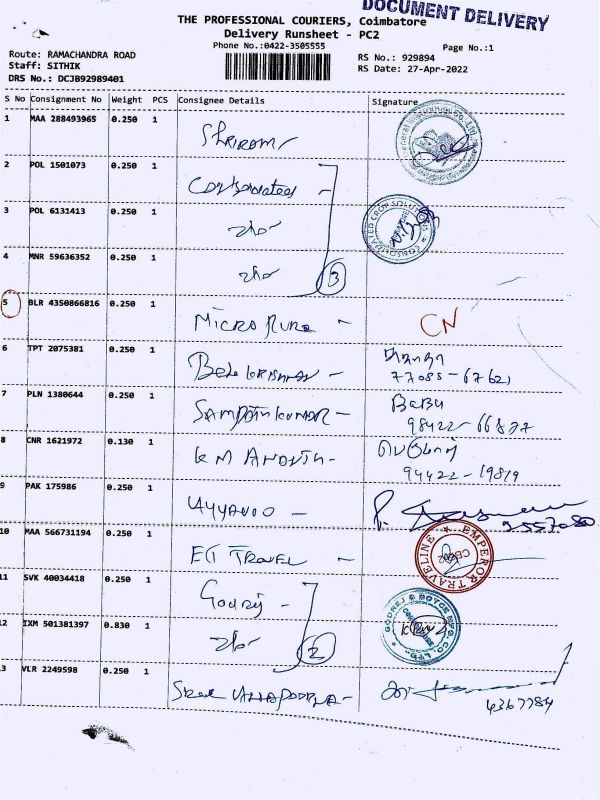 DOCUMENT DELIVERY
THE PROFESSIONAL COURIERS, Coimbatore
Delivery Runsheet - PC2
Phone No.:0422-3505555
Page No.:1
Route: RAMACHANDRA ROAD
RS No.: 929894
Staff: SITHIK
RS Date: 27-Apr-2022
DRS No.: DCJB92989401
S No Consignment No Weight PCS Consignee Details Signature
1 MAA 288493965 0.250 1
2 POL 1501073 0.250 1
3 POL 6131413 0.250 1
CONSOLIDATED
4 MNR 59636352 0.250 1
3
5 BLR 4350866816 0.250 1
MICRO PURE - CN
6 TPT 2075381 0.250 1
77085-67621
7 PLN 1380644 0.250 1
SAMPATHKUMAR - BABU
98422-66877
8 CNR 1621972 0.130 1
K M
94422-19819
9 PAK 175986 0.250 1
AYYANOO -
10 MAA 566731194 0.250 1
ET TRAVEL - EMPEROR TRAVELINE
11 SVK 40034418 0.250 1
Godrej - GODREJ & BOYCE MFG. CO. LTD.
12 IXM 501381397 0.830 1
2
13 VLR 2249598 0.250 1
4367784